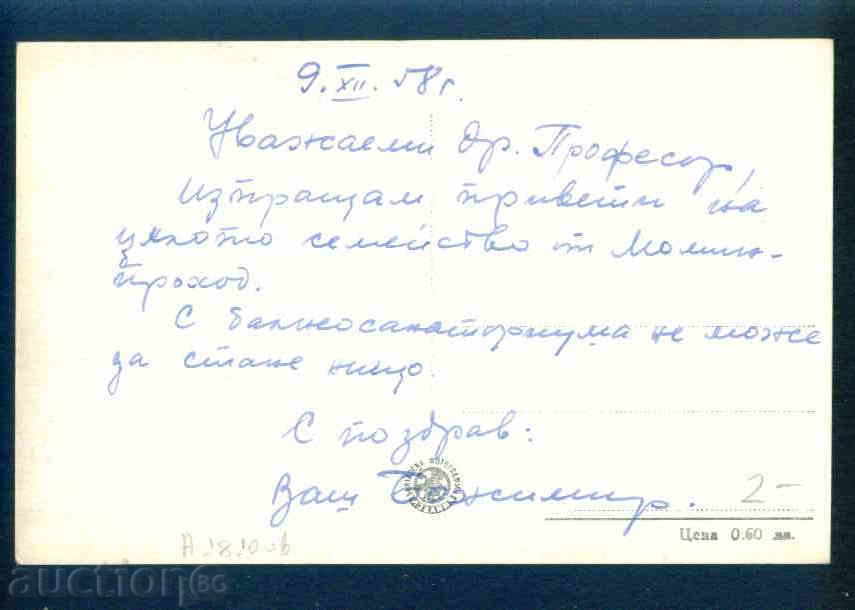 9.XII.58г.
Уважаеми др. Професор,
Изпращам привети на
цялото семейство от Момин-
проход.
С балнеосанаториума не може
да стане нищо.
С поздрав:
Ваш Божимир.
2-
Цена 0.60 лв.
auction.bg